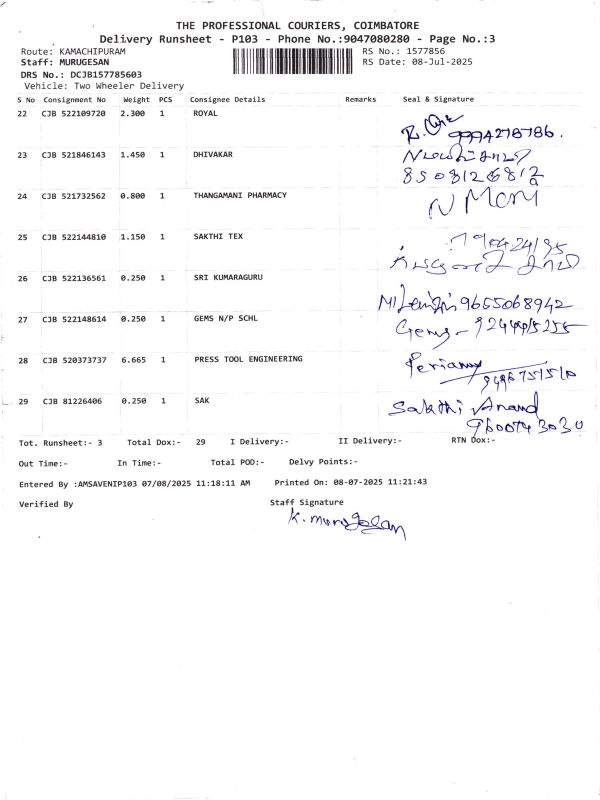 THE PROFESSIONAL COURIERS, COIMBATORE
Delivery Runsheet - P103 - Phone No.:9047080280 - Page No.:3
Route: KAMACHIPURAM RS No.: 1577856
Staff: MURUGESAN RS Date: 08-Jul-2025
DRS No.: DCJB157785603
Vehicle: Two Wheeler Delivery
S No Consignment No Weight PCS Consignee Details Remarks Seal & Signature
22 CJB 522109720 2.300 1 ROYAL
9994278786.
23 CJB 521846143 1.450 1 DHIVAKAR
8508126812
24 CJB 521732562 0.800 1 THANGAMANI PHARMACY
25 CJB 522144810 1.150 1 SAKTHI TEX
26 CJB 522136561 0.250 1 SRI KUMARAGURU
9655068942
27 CJB 522148614 0.250 1 GEMS N/P SCHL
Gems -
28 CJB 520373737 6.665 1 PRESS TOOL ENGINEERING
29 CJB 81226406 0.250 1 SAK
Sakthi Anand
9600743030
Tot. Runsheet:- 3 Total Dox:- 29 I Delivery:- II Delivery:- RTN Dox:-
Out Time:- In Time:- Total POD:- Delvy Points:-
Entered By :AMSAVENIP103 07/08/2025 11:18:11 AM Printed On: 08-07-2025 11:21:43
Verified By Staff Signature
K. Murugesan